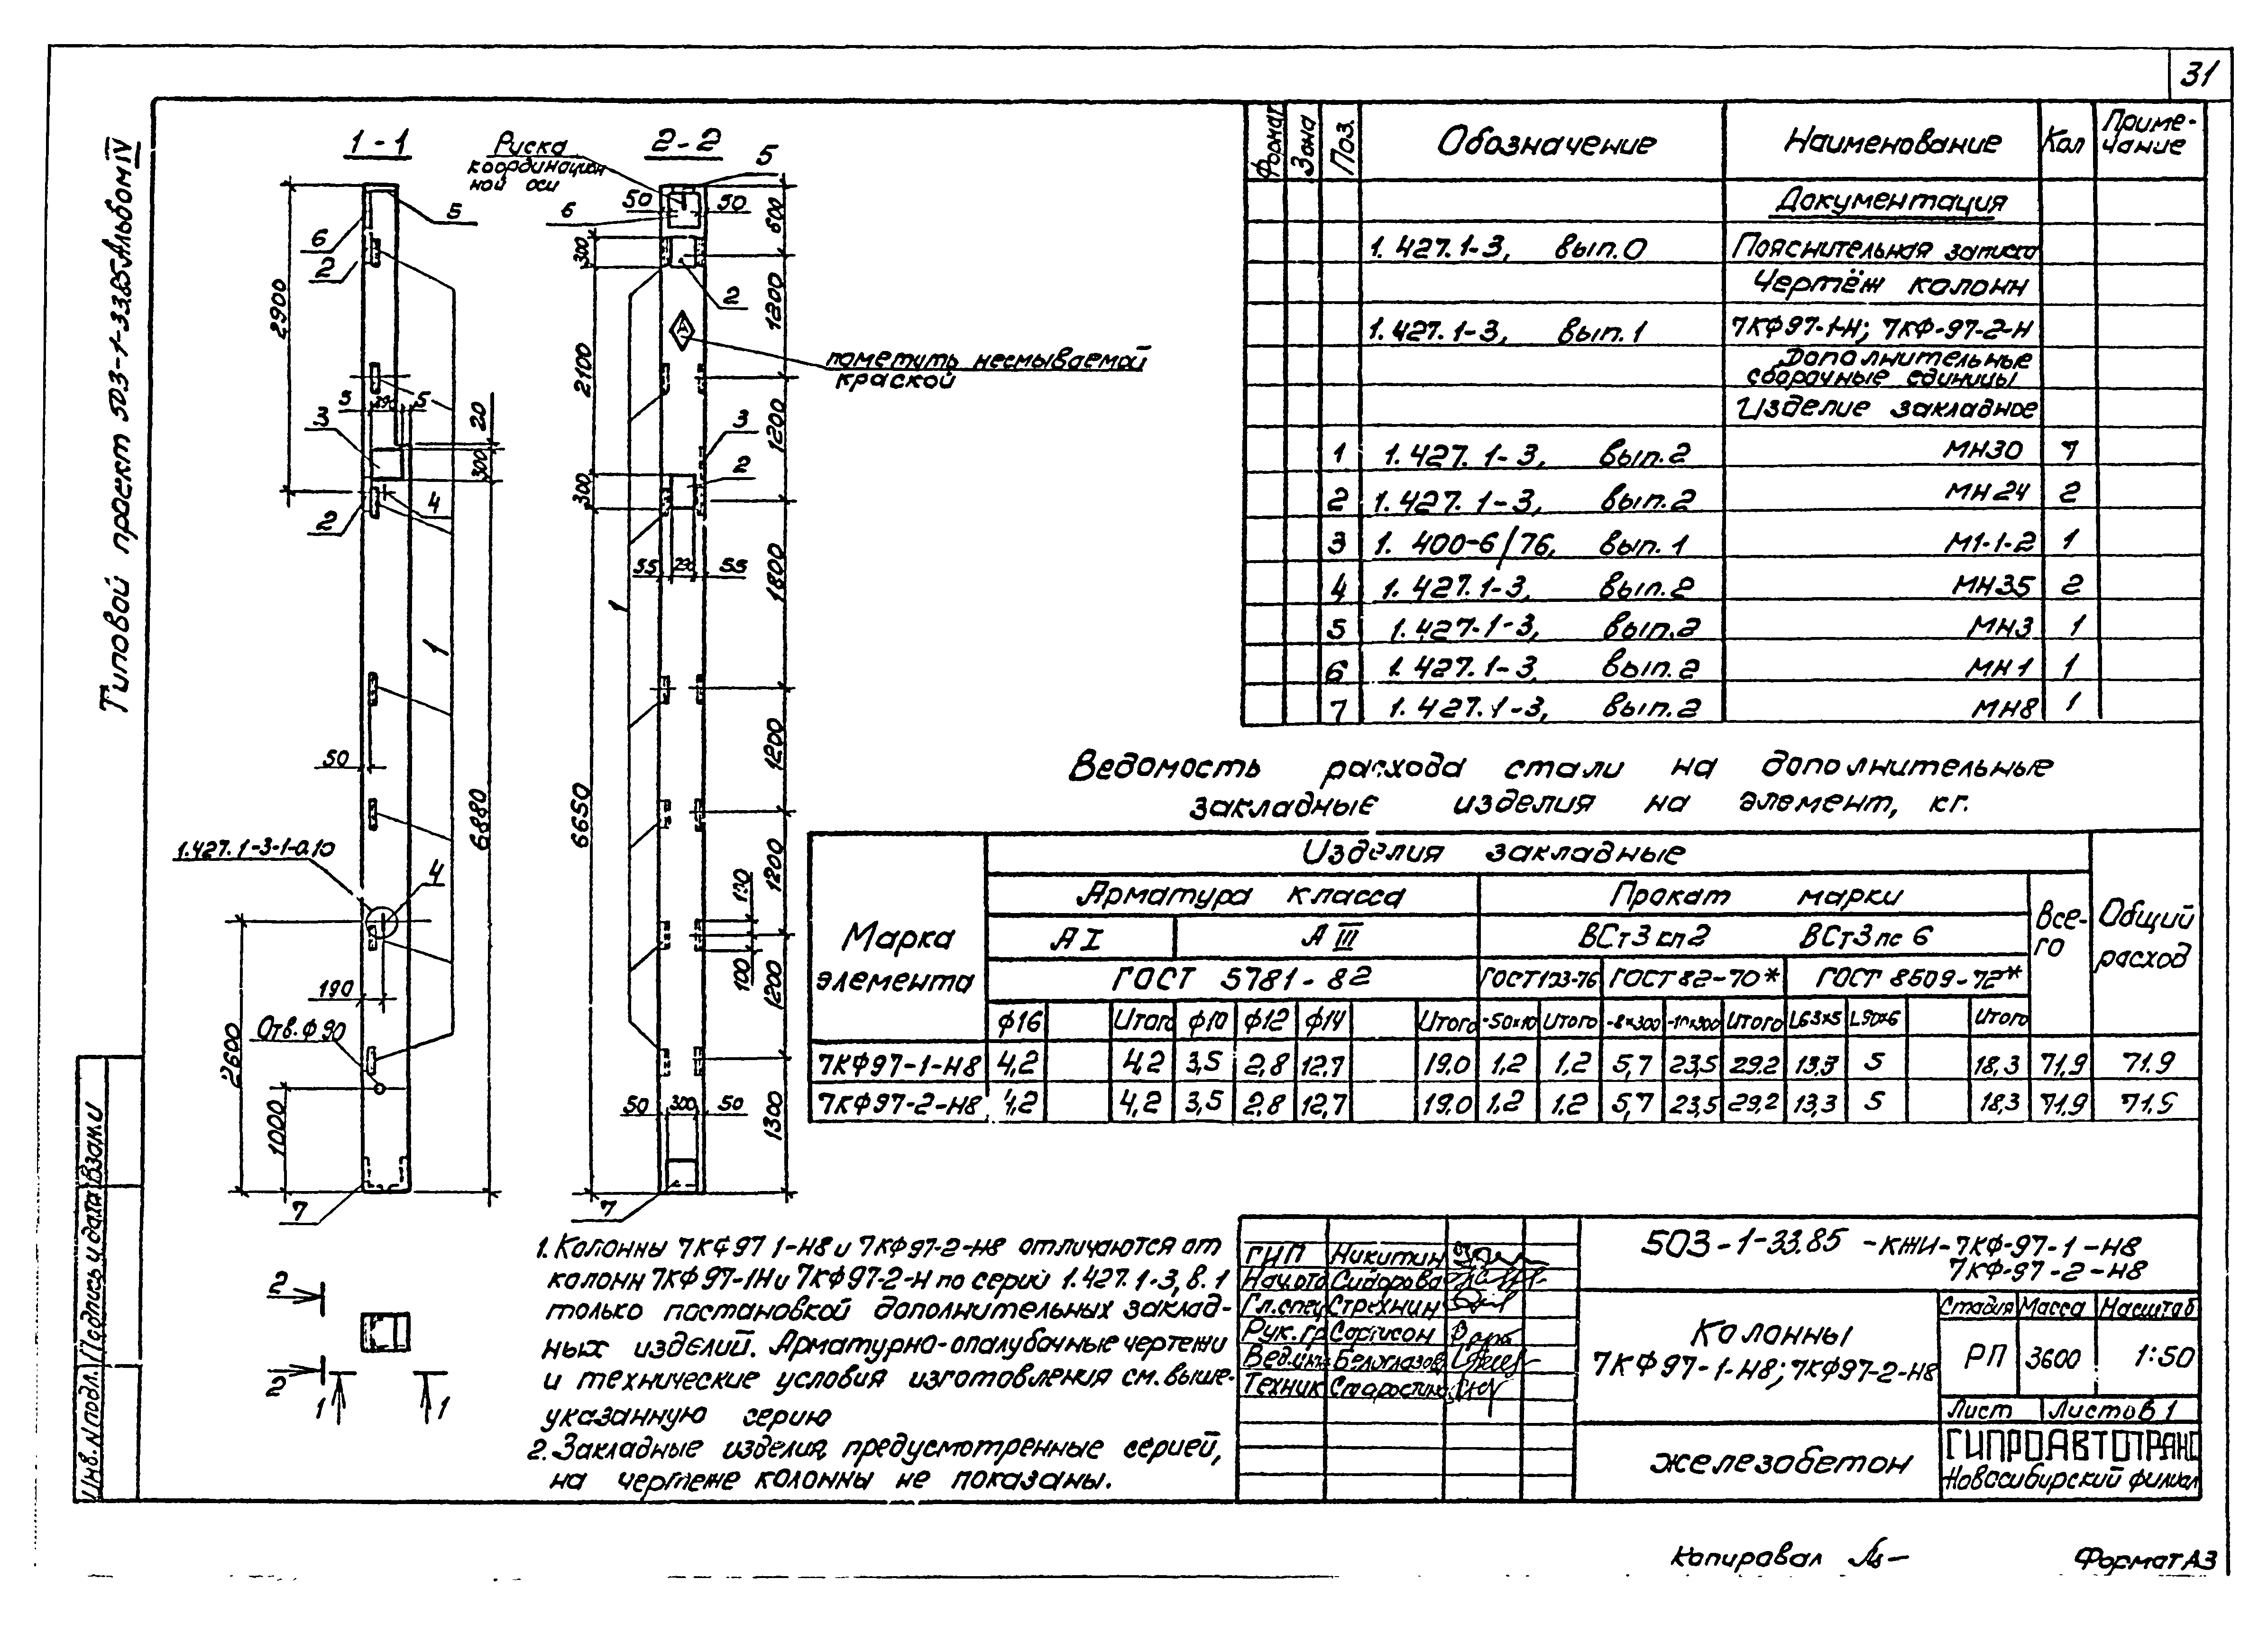 31
Типовой проект 503-1-33.85 Альбом IV
1-1
2-2
Риска
координацион
ной оси
5
6
2
2900
5
3
4
2
1
50
1.427.1-3-1-0.10
4
190
Отв. ф 90
2600
1000
7
20
300
6880
50
50
600
300
1200
2
2100
пометить несмываемой
краской
1200
3
2
300
55
55
1800
1
1200
6650
1200
100
1200
50 300 50
1300
7
2
2
1
1
Формат Зона Поз. Обозначение Наименование Кол Приме-
чание
Документация
1.427.1-3, вып.0 Пояснительная записка
Чертёж колонн
1.427.1-3, вып.1 7КФ97-1-Н; 7КФ-97-2-Н
Дополнительные
сборочные единицы
Изделие закладное
1 1.427.1-3, вып.2 МН30 7
2 1.427.1-3, вып.2 МН24 2
3 1.400-6/76, вып.1 М1-1-2 1
4 1.427.1-3, вып.2 МН35 2
5 1.427.1-3, вып.2 МН3 1
6 1.427.1-3 вып.2 МН1 1
7 1.427.1-3, вып.2 МН8 1
Ведомость расхода стали на дополнительные
закладные изделия на элемент, кг.
Марка
элемента
Изделия закладные
Общий
расход
Арматура класса Прокат марки Все-
го
А I А III ВСт3кп2 ВСт3пс6
ГОСТ 5781-82 ГОСТ103-76 ГОСТ82-70* ГОСТ 8509-72*
ф16 Итого ф10 ф12 ф14 Итого -50х10 Итого -8х300 -10х300 Итого L63х5 L90х6 Итого
7КФ97-1-Н8 4,2 4,2 3,5 2,8 12,7 19.0 1,2 1,2 5,7 23,5 29,2 13,3 5 18,3 71,9 71.9
7КФ97-2-Н8 4,2 4,2 3,5 2,8 12,7 19.0 1,2 1,2 5,7 23,5 29,2 13,3 5 18,3 71,9 71.9
1. Колонны 7КФ97 1-Н8 и 7КФ97-2-Н8 отличаются от
колонн 7КФ97-1Н и 7КФ97-2-Н по серий 1.427.1-3, в.1
только постановкой дополнительных заклад-
ных изделий. Арматурно-опалубочные чертежи
и технические условия изготовления см. выше-
указанную серию
2. Закладные изделия, предусмотренные серией,
на чертеже колонны не показаны.
ГИП Никитин
Нач.отд Сидорова
Гл.спец Стрехнин
Рук.гр
Вед.инж Белоглазов
Техник Старостина
503-1-33.85 -КЖИ-7КФ-97-1-Н8
7КФ-97-2-Н8
Колонны
7КФ97-1-Н8; 7КФ97-2-Н8
Стадия Масса Масштаб
РП 3600 1:50
Лист Листов 1
железобетон
ГИПРОАВТОТРАНС
Новосибирский филиал
Инв. N подл. Подпись и дата Взам.И
Копировал
Формат А3